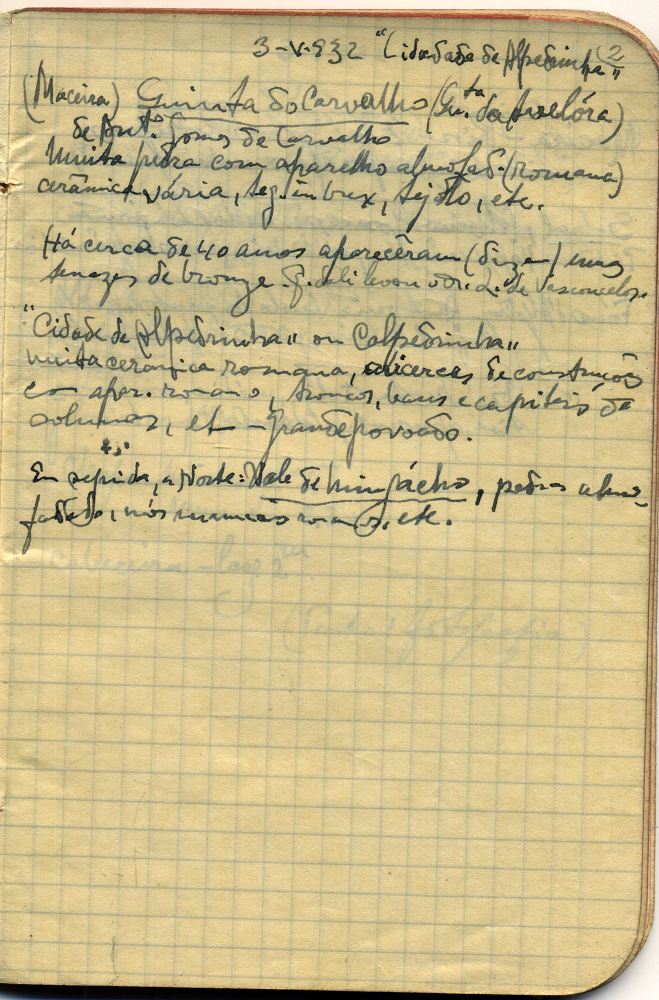 3-V-932 "Cidadade de Alpedrinha" (2
(Maceira) Quinta do Carvalho (Qu.ta da Avelôra)
de Ant.º Gomes de Carvalho
Muita pedra com aparelho almofad. (Romana)
cerâmica vária, teg. imbrex, tijolo, etc.
Há cerca de 40 anos apareceram (dizem) umas
tenazes de bronze q. dali levou o Dr. L. de Vasconcelos.
"Cidade de Alpedrinha" ou Calpedrinha"
muita cerâmica romana, alicerces de construções
com apar. romano, troncos, bases e capiteis de
colunas, etc – grande povoado.
Em seguida, a Norte: Vale de Mingácho, pedras almo-
fadadas, mós manuais romanas, etc.